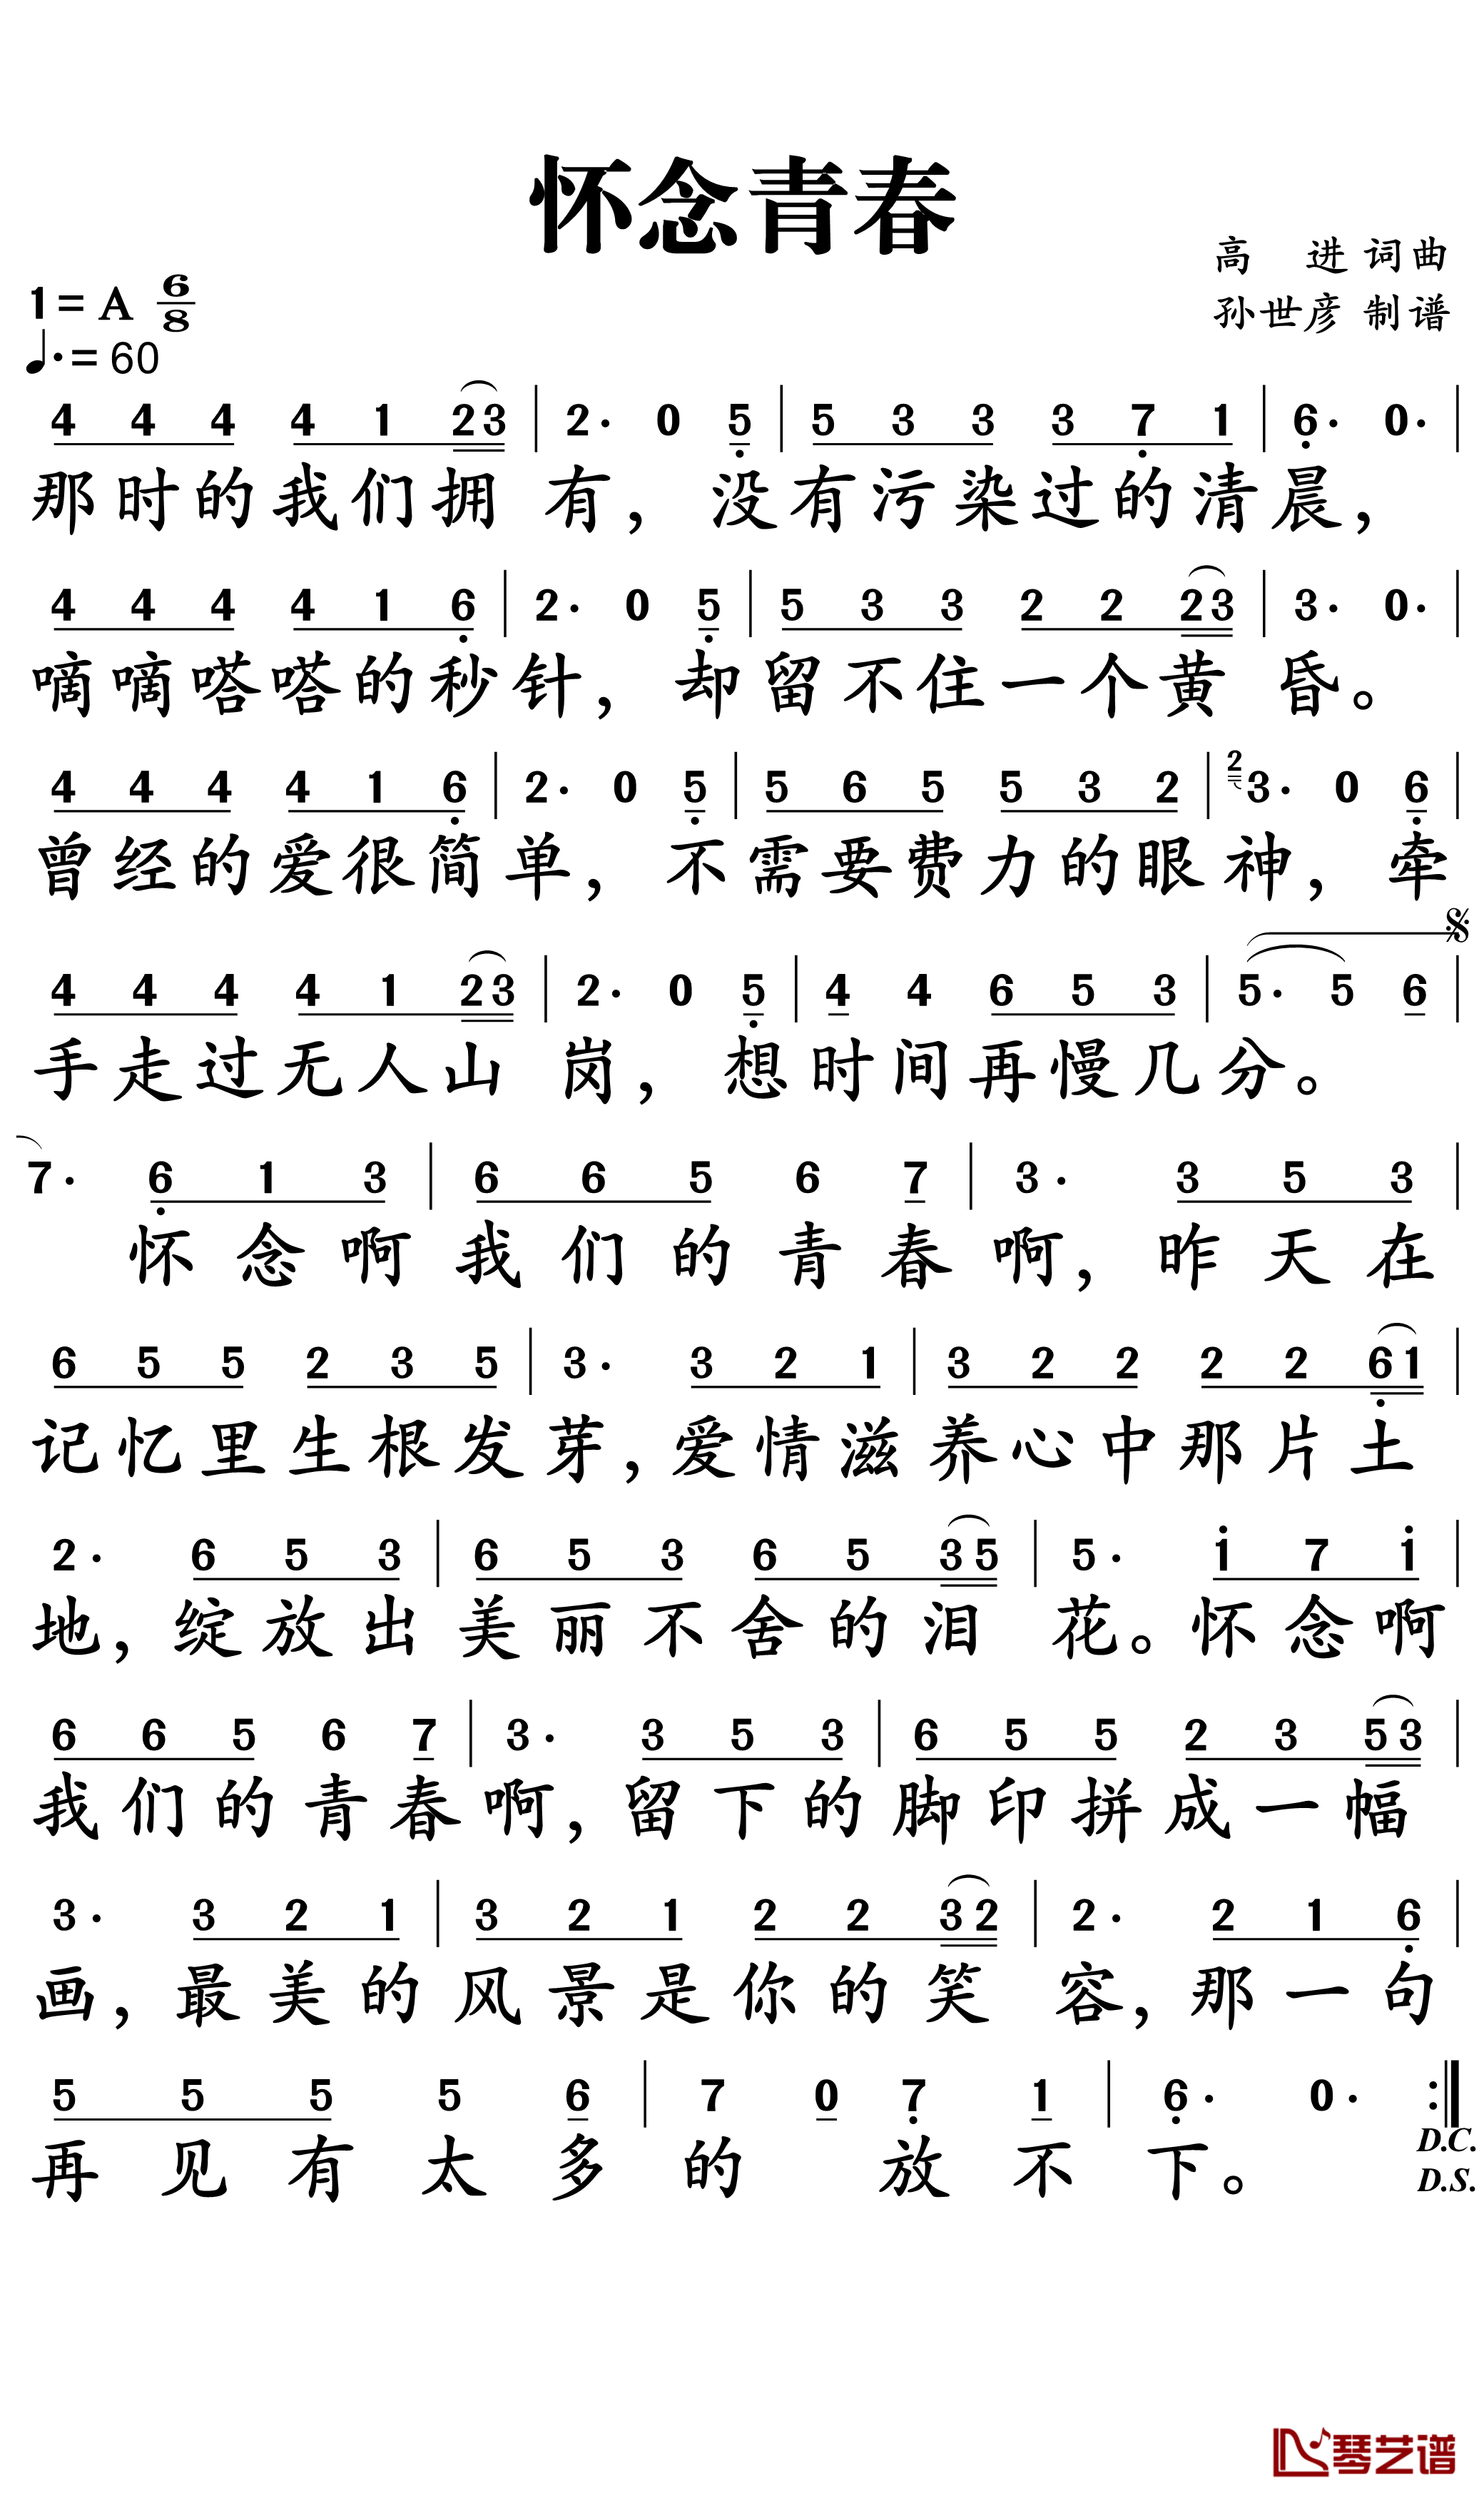 怀念青春
高 进 词曲
1=A 6/8
孙世彦 制谱
♩.=60
4 4 4 4 1 2 3 | 2· 0 5 | 5 3 3 3 7 1 | 6· 0· |
那时的我们拥有，没有污染过的清晨，
4 4 4 4 1 6 | 2· 0 5 | 5 3 3 2 2 2 3 | 3· 0· |
窗窗喽喽的科针，却留不住一个黄昏。
4 4 4 4 1 6 | 2· 0 5 | 5 6 5 5 3 2 | 2 3· 0 6 |
曾经的爱很简单，不需要费力的眼神，牵
4 4 4 4 1 2 3 | 2· 0 5 | 4 4 6 5 3 | 5· 5 6 |
手走过无人山岗，想时间再慢几分。
7· 6 1 3 | 6 6 5 6 7 | 3· 3 5 3 |
怀念啊我们的青春啊，昨天在
6 5 5 2 3 5 | 3· 3 2 1 | 3 2 2 2 2 6 1 |
记忆里生根发芽，爱情滋养心中那片土
2· 6 5 3 | 6 5 3 6 5 3 5 | 5· 1 7 1 |
地，绽放出美丽不舍的泪花。怀念啊
6 6 5 6 7 | 3· 3 5 3 | 6 5 5 2 3 5 3 |
我们的青春啊，留下的脚印拼成一幅
3· 3 2 1 | 3 2 1 2 2 3 2 | 2· 2 1 6 |
画，最美的风景是你的笑容，那一句
5 5 5 5 6 | 7 0 7 1 | 6· 0· :|
再见有太多的放不下。
D.C.
D.S.
琴艺谱